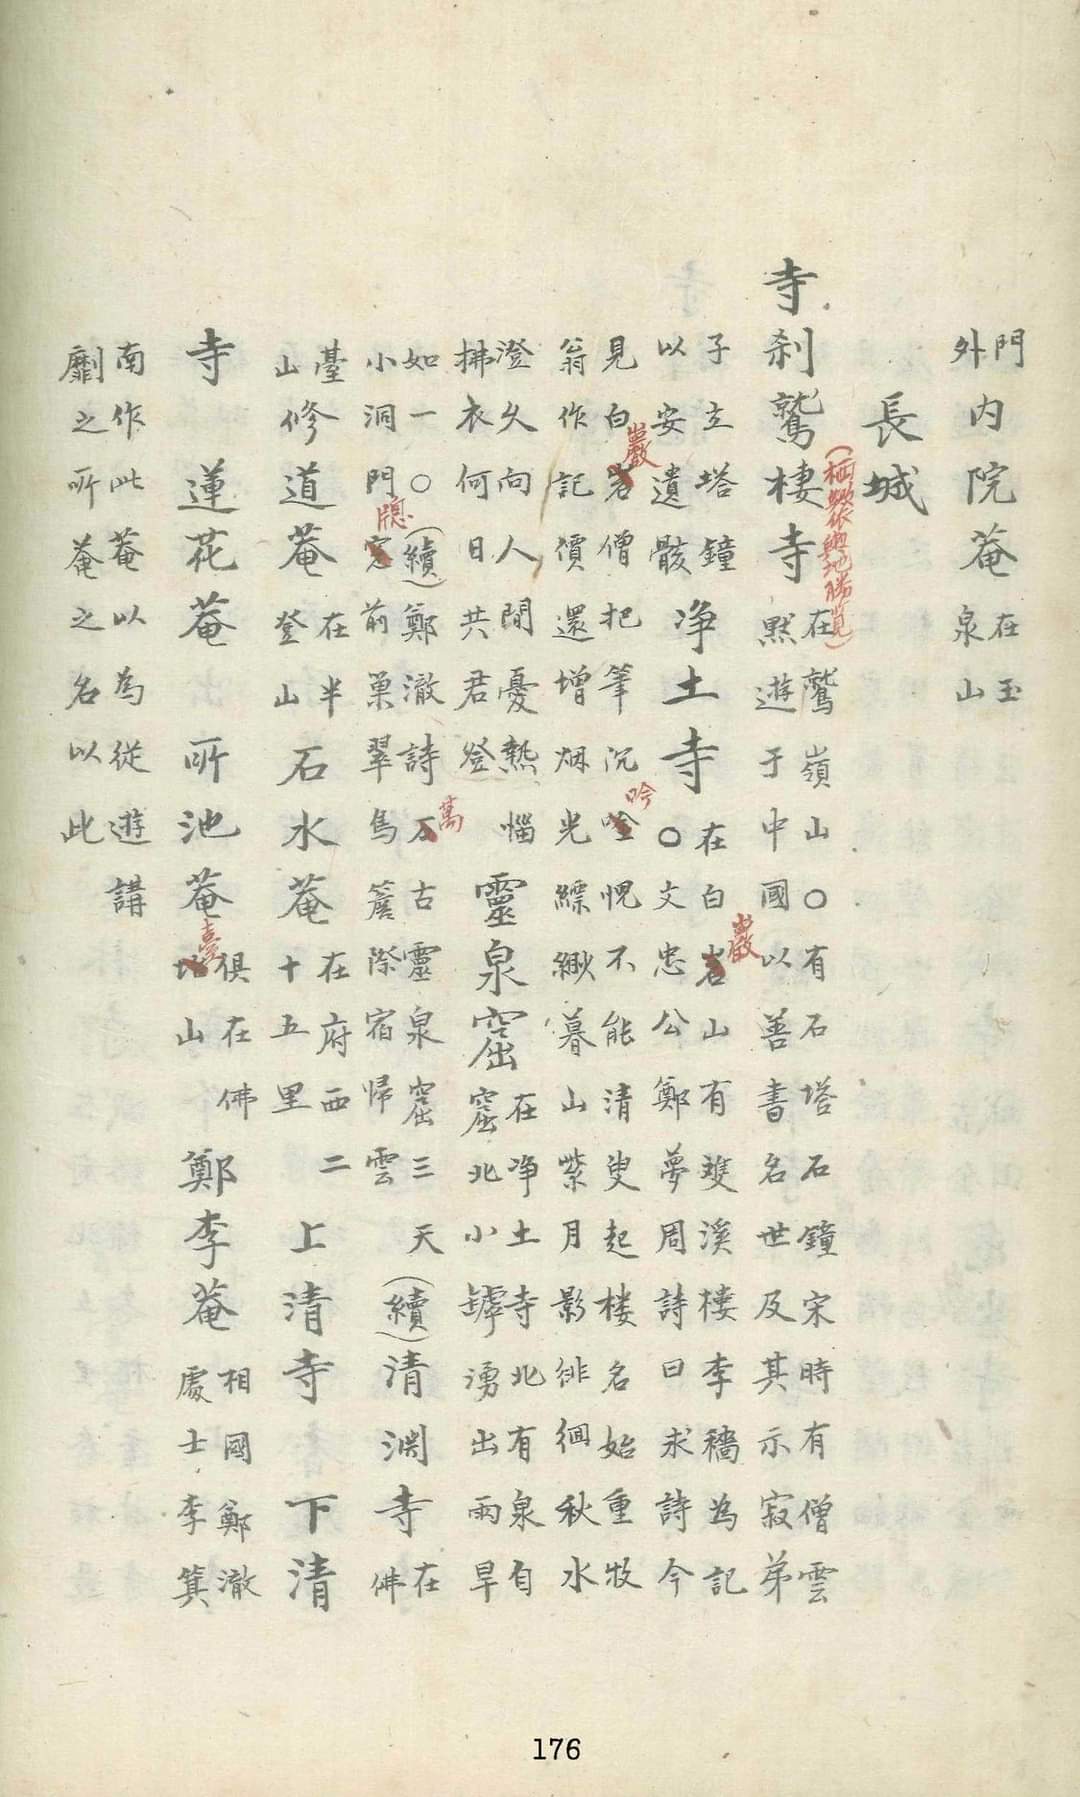 門
外
內院菴
在玉
泉山
長城
(栖數依輿地勝覽)
寺剎鷲棲寺
在鷲嶺山○有石塔石鐘宋時有僧雲
黙遊于中國以善書名世及其示寂弟
子立塔鐘
以安遺骸
淨土寺
在白岩山有雙溪樓李穡為記
巖
○文忠公鄭夢周詩曰求詩今
見白岩僧把筆沉唫愧不能清叟起楼名始重牧
巖
吟
翁作記價還增烟光縹緲暮山紫月影徘徊秋水
澄久向人間憂熱惱
拂衣何日共君登
靈泉窟
在淨土寺北有泉自
窟北小罅湧出雨旱
如一○(續)鄭澈詩万古靈泉窟三天
萬
小洞門窓前巢翠鳥簷際宿歸雲
牕
(續)清渊寺
在佛
臺
山
修道菴
在半
登山
石水菴
在府西二
十五里
上清寺下清
寺蓮花菴听池菴
俱在佛
坮山
臺
鄭李菴
相國鄭澈
處士李箕
南作此菴以為從遊講
劘之听菴之名以此
176